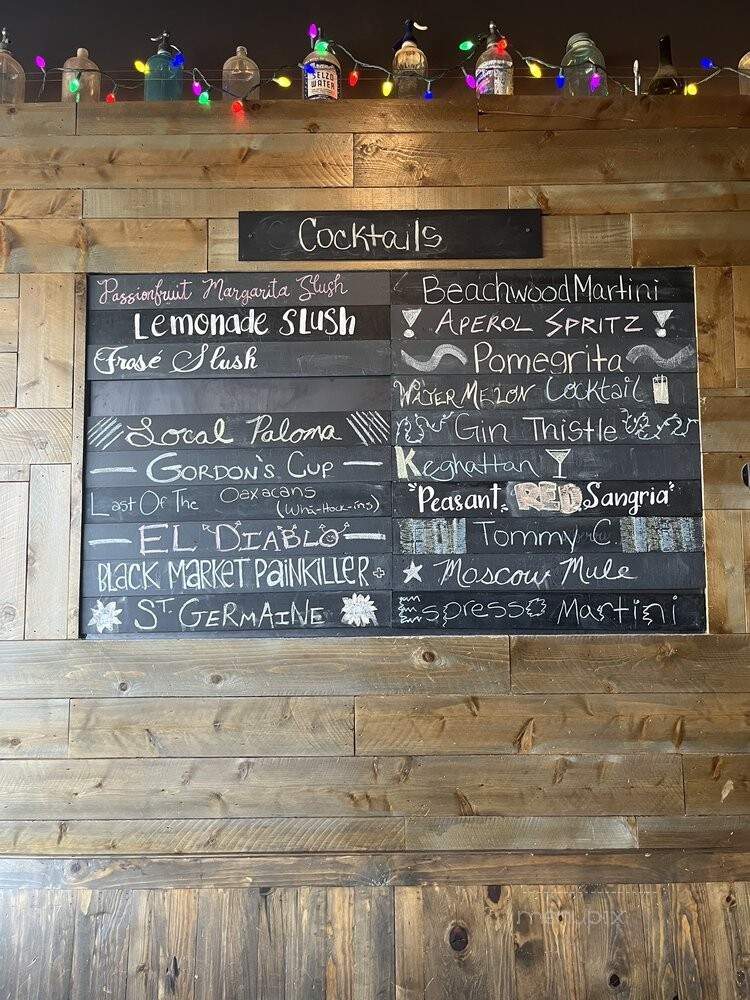 SELZO
WATER
Cocktails
Passionfruit Margarita Slush
Lemonade Slush
Frosé Slush
Local Paloma
Gordon's Cup
Last Of The Oaxacans
(Whà-Hock-ins)
El Diablo
Black Market Painkiller
St. Germaine
Beachwood Martini
Aperol Spritz
Pomegrita
Watermelon Cocktail
Gin Thistle
Keghattan
"Peasant RED Sangria"
Tommy C.
Moscow Mule
Espresso Martini
menupix